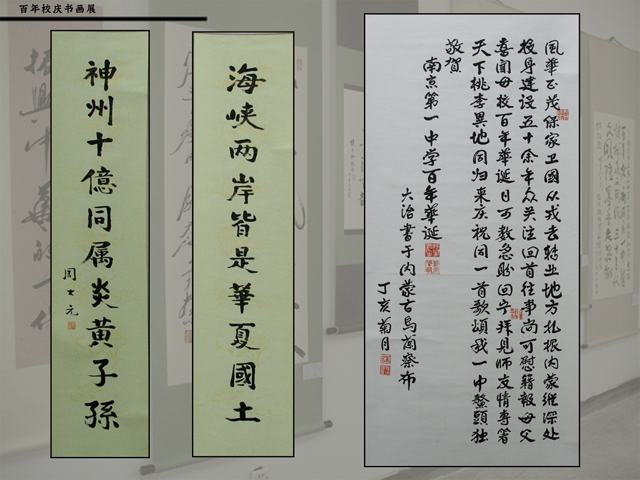 百年校庆书画展
海峡两岸皆是華夏國土
神州十億同属炎黃子孫
周士元
風華正茂保家卫國从戎去轉业地方扎根内蒙继深处
投身建设五十余年众关注回首往事尚可慰籍報母父
喜闻母校百年華诞日可数急盼回宁拜见师友情專箸
天下桃李異地同归来庆祝同一首歌頌我一中鳌頭独
敬贺
南京第一中学百年華诞
大治書于内蒙古烏蘭察布
丁亥菊月